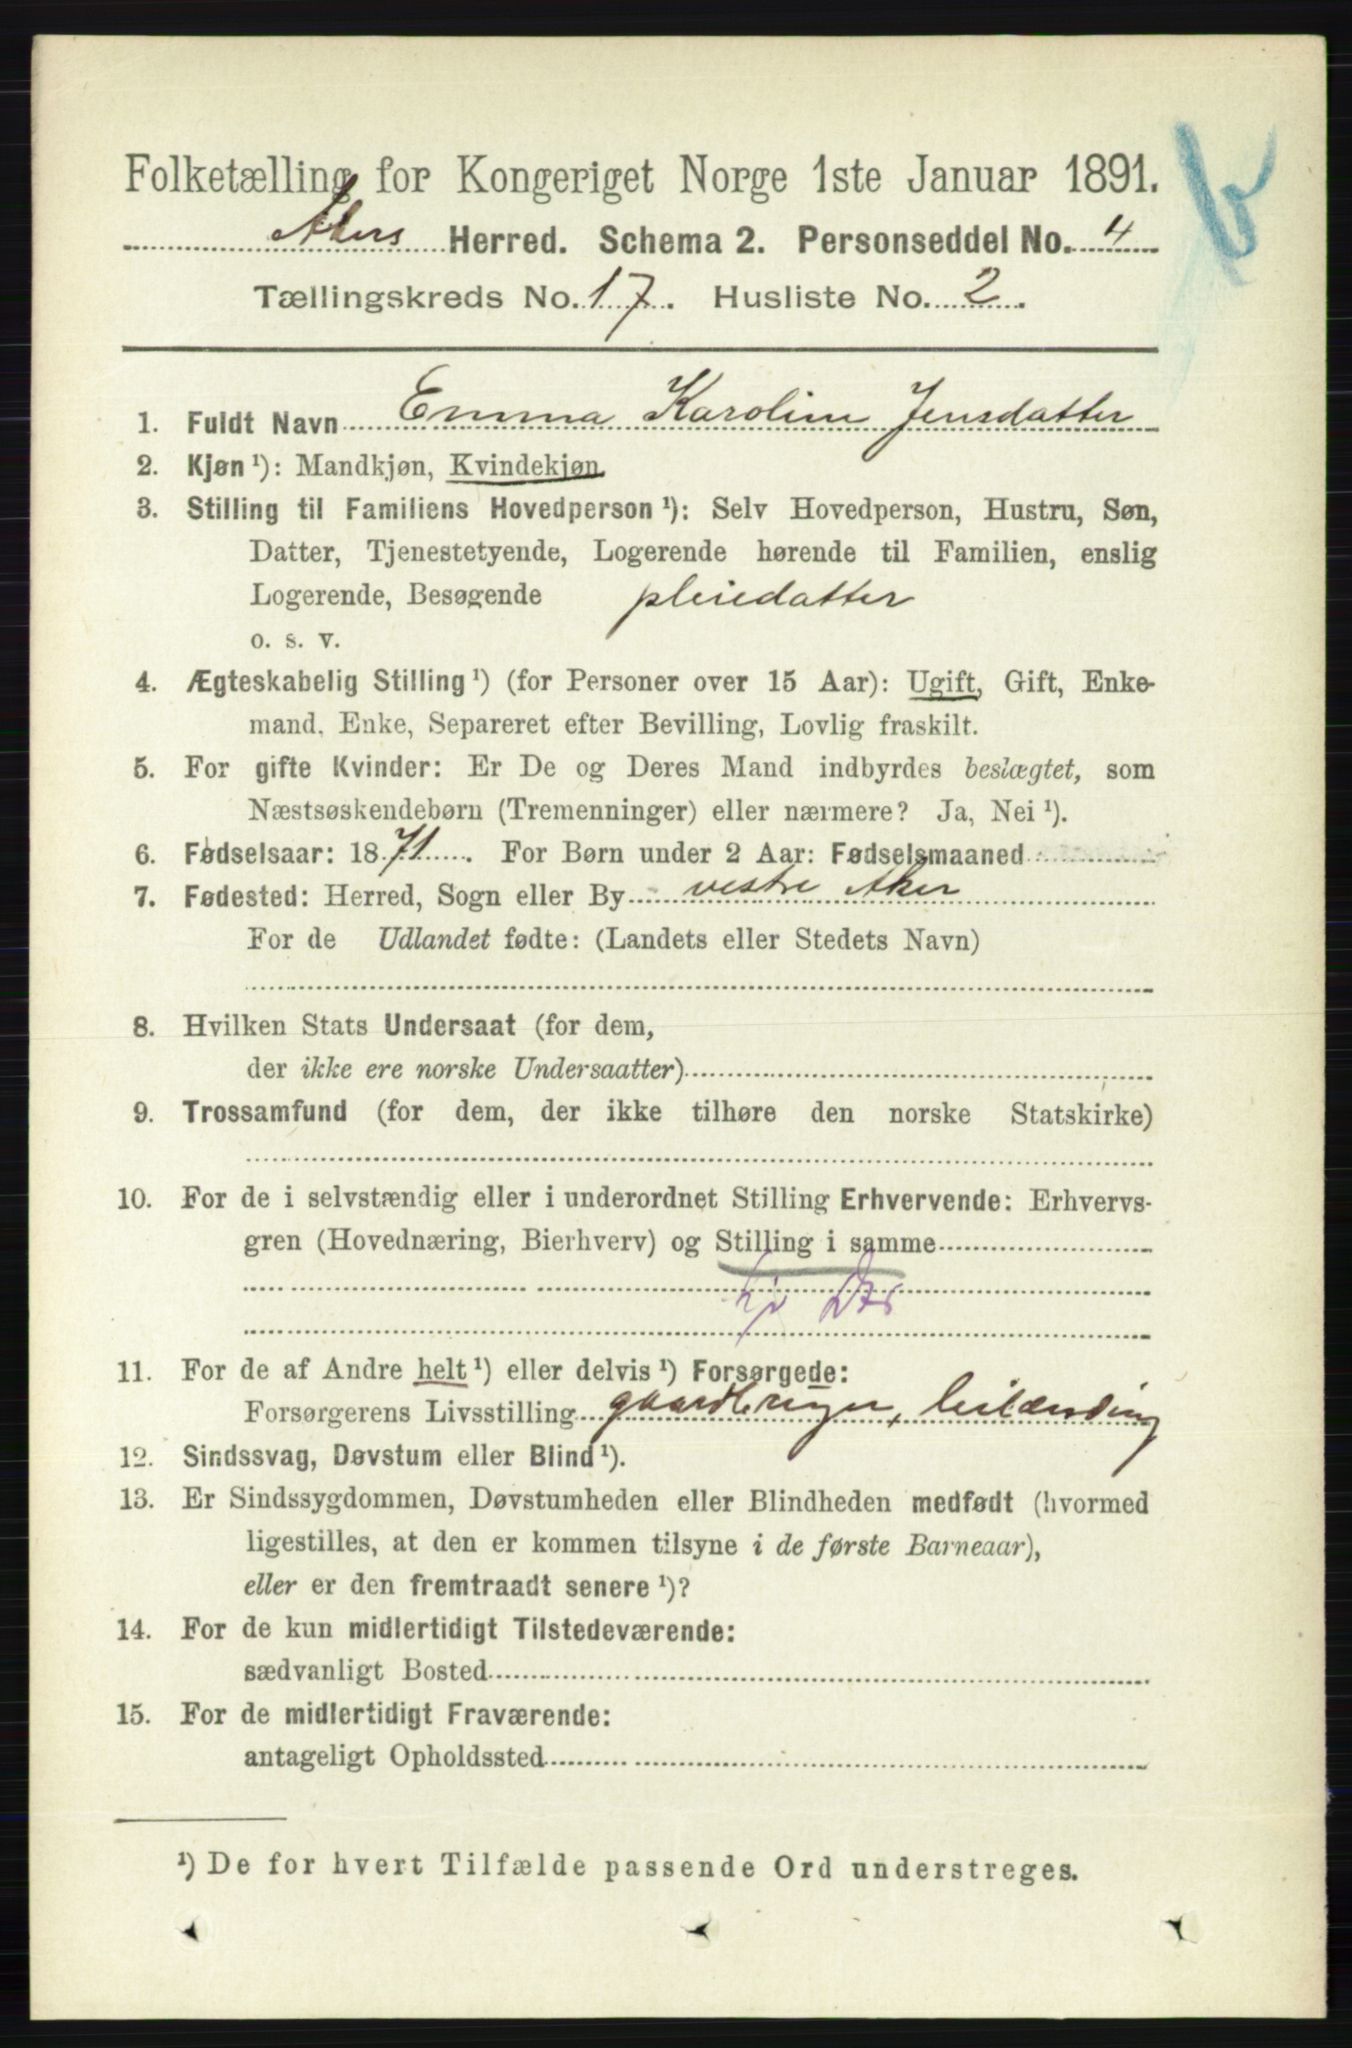 Folketælling for Kongeriget Norge 1ste Januar 1891.
Akers Herred. Schema 2. Personseddel No. 4
Tællingskreds No. 17. Husliste No. 2.
1. Fuldt Navn Emma Karoline Jensdatter
2. Kjøn ¹): Mandkjøn, Kvindekjøn.
3. Stilling til Familiens Hovedperson ¹): Selv Hovedperson, Hustru, Søn,
Datter, Tjenestetyende, Logerende hørende til Familien, enslig
Logerende, Besøgende pleiedatter
o. s. v.
4. Ægteskabelig Stilling ¹) (for Personer over 15 Aar): Ugift, Gift, Enke-
mand, Enke, Separeret efter Bevilling, Lovlig fraskilt.
5. For gifte Kvinder: Er De og Deres Mand indbyrdes beslægtet, som
Næstsøskendebørn (Tremenninger) eller nærmere? Ja, Nei ¹).
6. Fødselsaar: 1871. For Børn under 2 Aar: Fødselsmaaned
7. Fødested: Herred, Sogn eller By vestre Aker
For de Udlandet fødte: (Landets eller Stedets Navn)
8. Hvilken Stats Undersaat (for dem,
der ikke ere norske Undersaatter)
9. Trossamfund (for dem, der ikke tilhøre den norske Statskirke)
10. For de i selvstændig eller i underordnet Stilling Erhvervende: Erhvervs-
gren (Hovednæring, Bierhverv) og Stilling i samme
11. For de af Andre helt ¹) eller delvis ¹) Forsørgede:
Forsørgerens Livsstilling gaardbruger, leilænding
12. Sindssvag, Døvstum eller Blind ¹).
13. Er Sindssygdommen, Døvstumheden eller Blindheden medfødt (hvormed
ligestilles, at den er kommen tilsyne i de første Barneaar),
eller er den fremtraadt senere ¹)?
14. For de kun midlertidigt Tilstedeværende:
sædvanligt Bosted
15. For de midlertidigt Fraværende:
antageligt Opholdssted
¹) De for hvert Tilfælde passende Ord understreges.